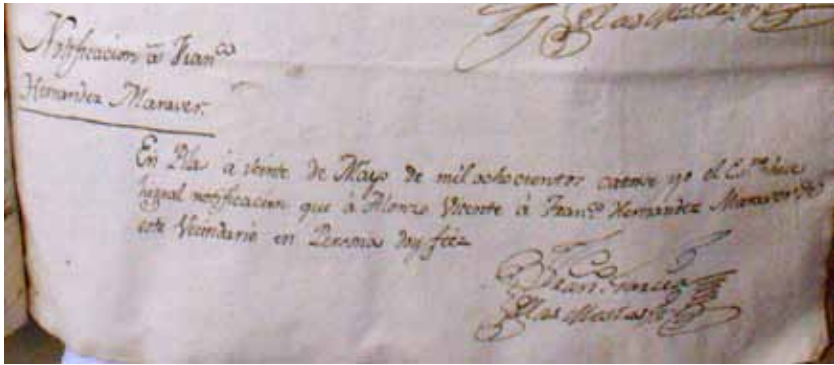 de las Mestas
Notificacion á Fran.co
Hernandez Maraver.
En Pilas á veinte de Mayo de mil ochocientos catorce yo el Es.no hice
higual notificacion que á Alonzo Vicente á Fran.co Hernandez Maraver de
este Vecindario en Persona doy fée
Fran.co Garcia
de las Mestas